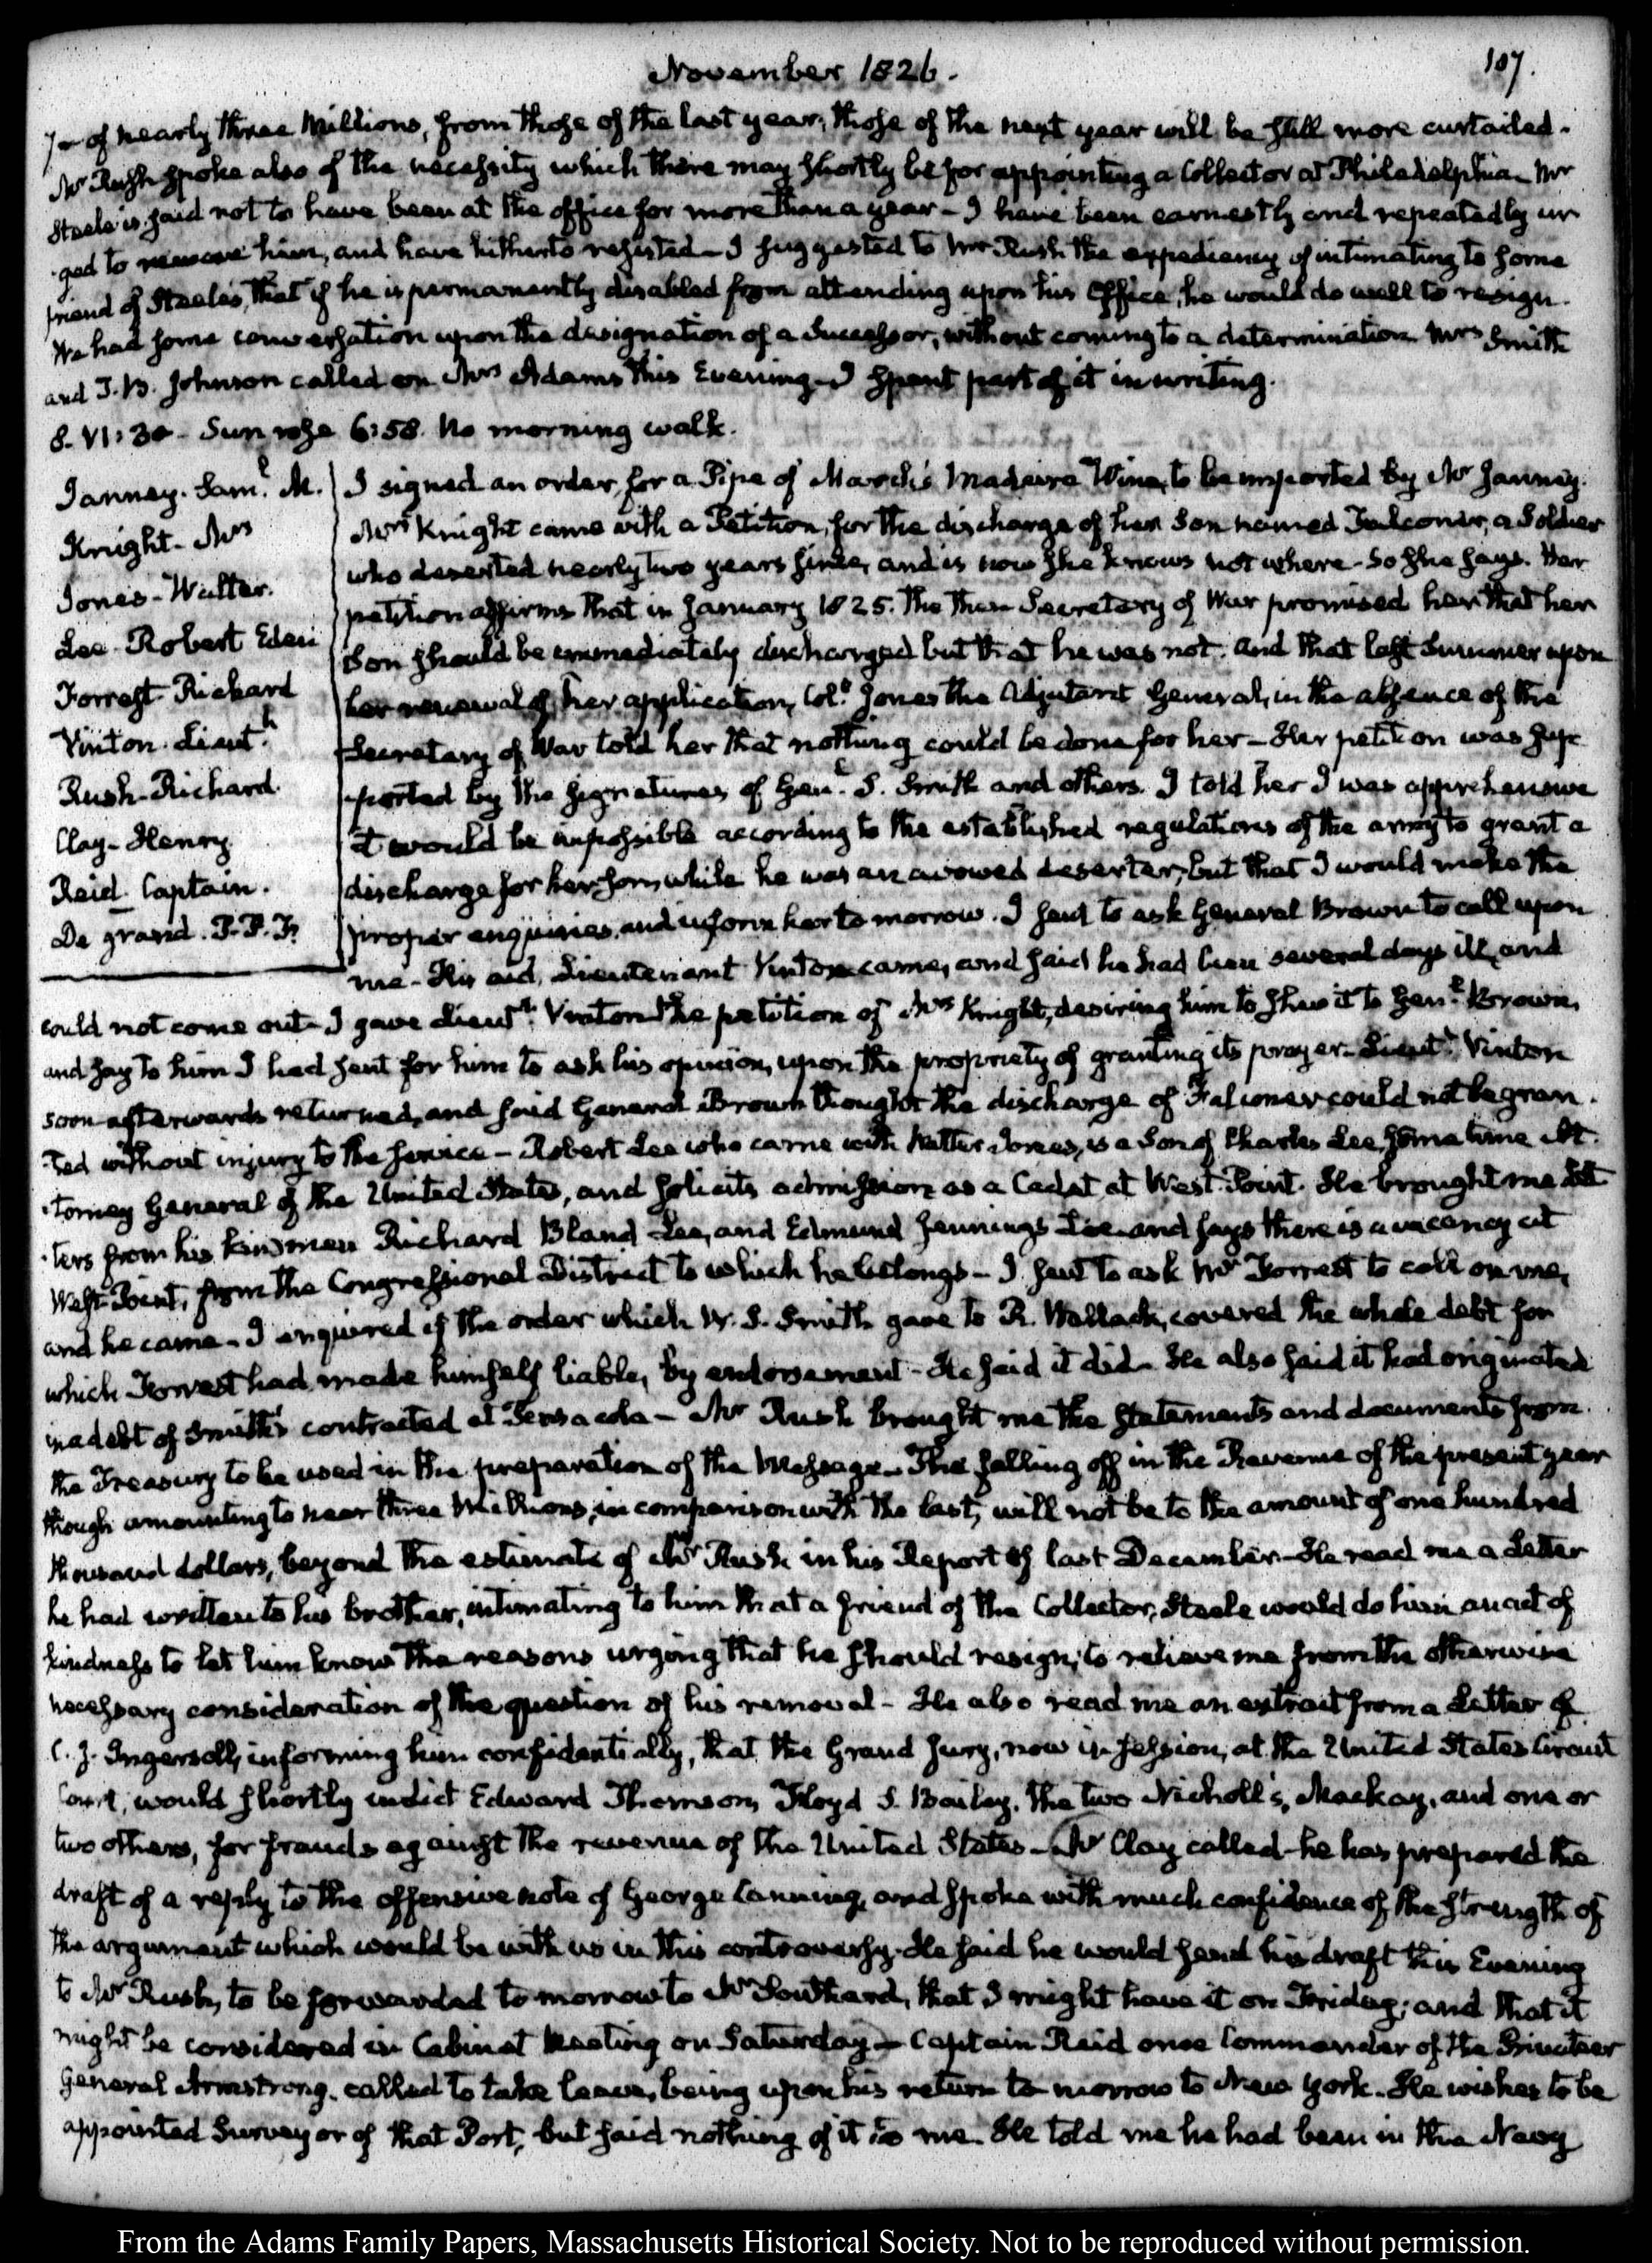 November 1826.
107.
7— of nearly three Millions, from those of the last year, those of the next year will be still more curtailed.
Mr Rush spoke also of the necessity which there may shortly be for appointing a Collector at Philadelphia— Mr
Steele is said not to have been at the office for more than a year— I have been earnestly and repeatedly ur
-ged to remove him, and have hitherto resisted— I suggested to Mr Rush the expediency of intimating to some
friend of Steele's, that if he is permanently disabled from attending upon his Office, he would do well to resign.
We had some conversation upon the designation of a Successor, without coming to a determination Mrs Smith
and J. B. Johnson called on Mrs Adams this Evening— I spent part of it in writing.
8. VI:30— Sun rose 6:58. No morning walk.
Janney. Saml. M.
Knight— Mrs
Jones— Walter.
Lee— Robert Eden
Forrest— Richard
Vinton. Lieutt.
Rush— Richard.
Clay— Henry
Reid— Captain.
De grand. P. P. F.
I signed an order, for a Pipe of March's Madeira Wine, to be imported by Mr Janney.
Mrs Knight came with a Petition, for the discharge of her Son named Falconer, a Soldier
who deserted nearly two years since, and is now she knows not where— So she says. Her
petition affirms that in January 1825. the then Secretary of War promised her that her
Son should be immediately discharged but that he was not. and that last Summer upon
her renewal of her application, Coll. Jones the Adjutant General, in the absence of the
Secretary of War told her that nothing could be done for her— Her petition was sup
-ported by the signatures of Genl. S. Smith and others. I told her I was apprehensive
it would be impossible according to the established regulations of the army to grant a
discharge for her son, while he was an avowed deserter; but that I would make the
proper enquiries, and inform her to morrow. I sent to ask General Brown to call upon
me— His aid, Lieutenant Vinton came, and said he had been several days ill, and
could not come out— I gave Lieutt. Vinton the petition of Mrs Knight, desiring him to shew it to Genl. Brown,
and say to him I had sent for him to ask his opinion, upon the propriety of granting its prayer— Lieutt. Vinton
soon afterwards returned, and said General Brown thought the discharge of Falconer could not be gran.
-ted without injury to the service— Robert Lee who came with Walter Jones, is a Son of Charles Lee, sometime At.
-torney General of the United States, and solicits admission as a Cadet at West-Point. He brought me Let
-ters from his kinsmen Richard Bland Lee, and Edmund Jennings Lee and says there is a vacancy at
West-Point, from the Congressional District to which he belongs— I sent to ask Mr Forrest to call on me,
and he came— I enquired if the order which W. S. Smith gave to R. Wallack, covered the whole debt for
which Forrest had made himself liable, by endorsement— He said it did— He also said it had originated
in a debt of Smith's contracted at Pensacola— Mr Rush brought me the statements and documents from
the Treasury to be used in the preparation of the Message— The falling off in the Revenue of the present year
though amounting to near three Millions, in comparison with the last, will not be to the amount of one hundred
thousand dollars, beyond the estimate of Mr Rush in his Report of last December— He read me a Letter
he had written to his brother, intimating to him that a friend of the Collector, Steele would do him an act of
kindness to let him know the reasons urging that he should resign, to relieve me from the otherwise
necessary consideration of the question of his removal— He also read me an extract from a Letter of
C. J. Ingersoll, informing him confidentially, that the Grand Jury, now in session, at the United States Circuit
Court, would shortly indict Edward Thomson, Floyd S. Bailey, the two Nicholl's, Mackay, and one or
two others, for frauds against the revenue of the United States— Mr Clay called— he has prepared the
draft of a reply to the offensive note of George Canning, and spoke with much confidence of the strength of
the argument which would be with us in this controversy. He said he would send his draft this Evening
to Mr Rush, to be forwarded to morrow to Mr Southard, that I might have it on Friday; and that it
might be considered in Cabinet Meeting on Saturday— Captain Reid once Commander of the Privateer
General Armstrong, called to take leave, being upon his return to morrow to New York. He wishes to be
appointed Surveyor of that Port, but said nothing of it to me. He told me he had been in the Navy
From the Adams Family Papers, Massachusetts Historical Society. Not to be reproduced without permission.